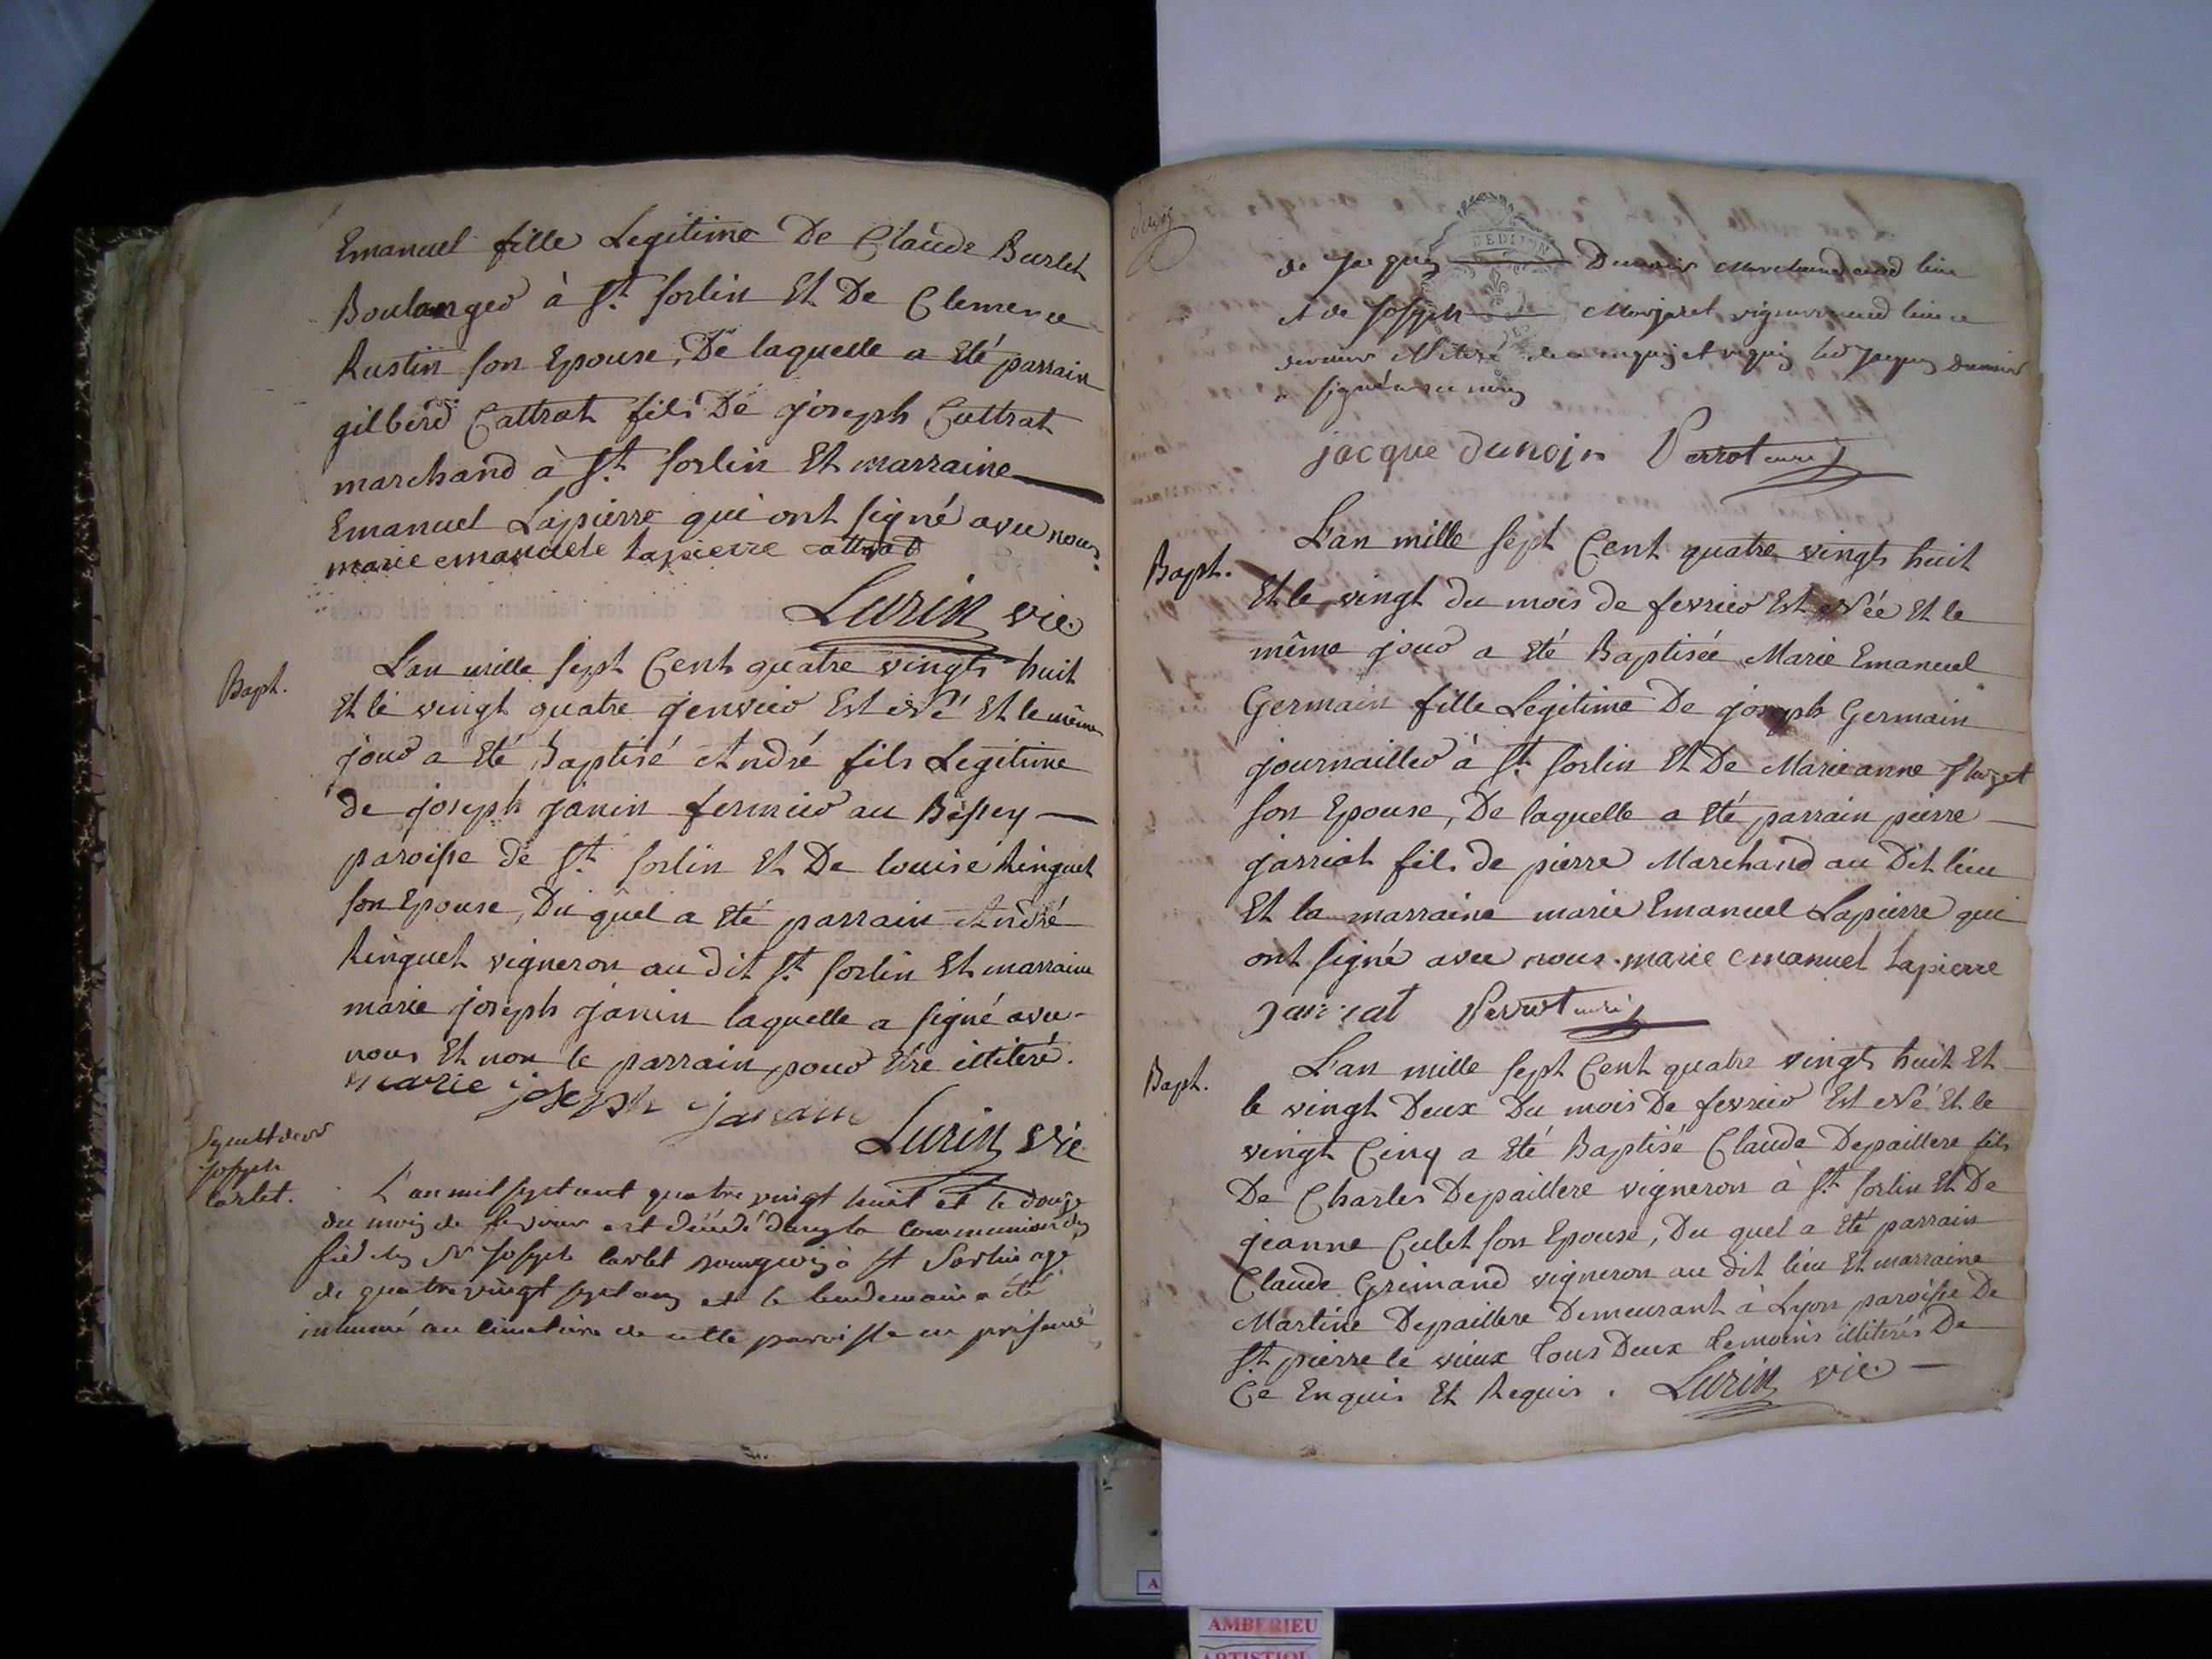 Emanuel fille Legitime De Claude Burlet
Boulanger à St. Sorlin Et De Clemence
Rustin son Epouse, De laquelle a Eté parrain
gilberd Cattrat fils De joseph Cattrat
marchand à St. Sorlin Et marraine
Emanuel Lapierre qui ont signé avec nous.
marie emanuele Lapierre cattrat
Lurin vic.
Bapt.
L'an mille sept Cent quatre vingts huit
Et le vingt quatre jenvier Est Né Et le même
jour a Eté Baptisé André fils Legitime
de joseph janin fermier au Bessey
paroisse de St. Sorlin Et De louise Ringuet
son Epouse, Du quel a Eté parrain André
Ringuet vigneron au dit St. Sorlin Et marraine
marie joseph janin laquelle a signé avec
nous Et non le parrain pour Etre illiteré.
marie joseph janain
Lurin vic
Sr
joseph
Carlet.
L'an mil sept cent quatre vingt huit et le douze
du mois de fevrier est décédé dans la communion des
fidelles Sr joseph Carlet Bourgeois à St Sorlin age
de quatre vingt sept ans et le lendemain a été
inhumé au cimetiere de cette paroisse en presence
de jacques Dunoir Marchand aud lieu
et de joseph Morjaret vigneron aud lieu ce
dernier illiteré de ce enquis et requis led jacques Dunoir
a signé avec nous
jacque dunojr Perrot curé
Bapt.
L'an mille sept Cent quatre vingts huit
Et le vingt du mois de fevrier Est Née Et le
même jour a Eté Baptisée Marie Emanuel
Germain fille Legitime De joseph Germain
journailler à St. Sorlin Et De Marie anne
son Epouse, De laquelle a Eté parrain pierre
jarriat fils de pierre Marchand au Dit lieu
Et la marraine marie Emanuel Lapierre qui
ont signé avec nous. marie emanuel Lapierre
jarriat Perrot curé
Bapt.
L'an mille sept Cent quatre vingts huit Et
le vingt Deux Du mois De fevrier Est Né Et le
vingt Cinq a Eté Baptisé Claude Depaillere fils
De Charles Depaillere vigneron à St. Sorlin Et De
jeanne Culet son Epouse, Du quel a Eté parrain
Claude Grimand vigneron au dit lieu Et marraine
Martine Depaillere Demeurant à Lyon paroisse De
St. pierre le vieux tous Deux temoins illiterés De
Ce Enquis Et Requis. Lurin vic.
A
AMBERIEU